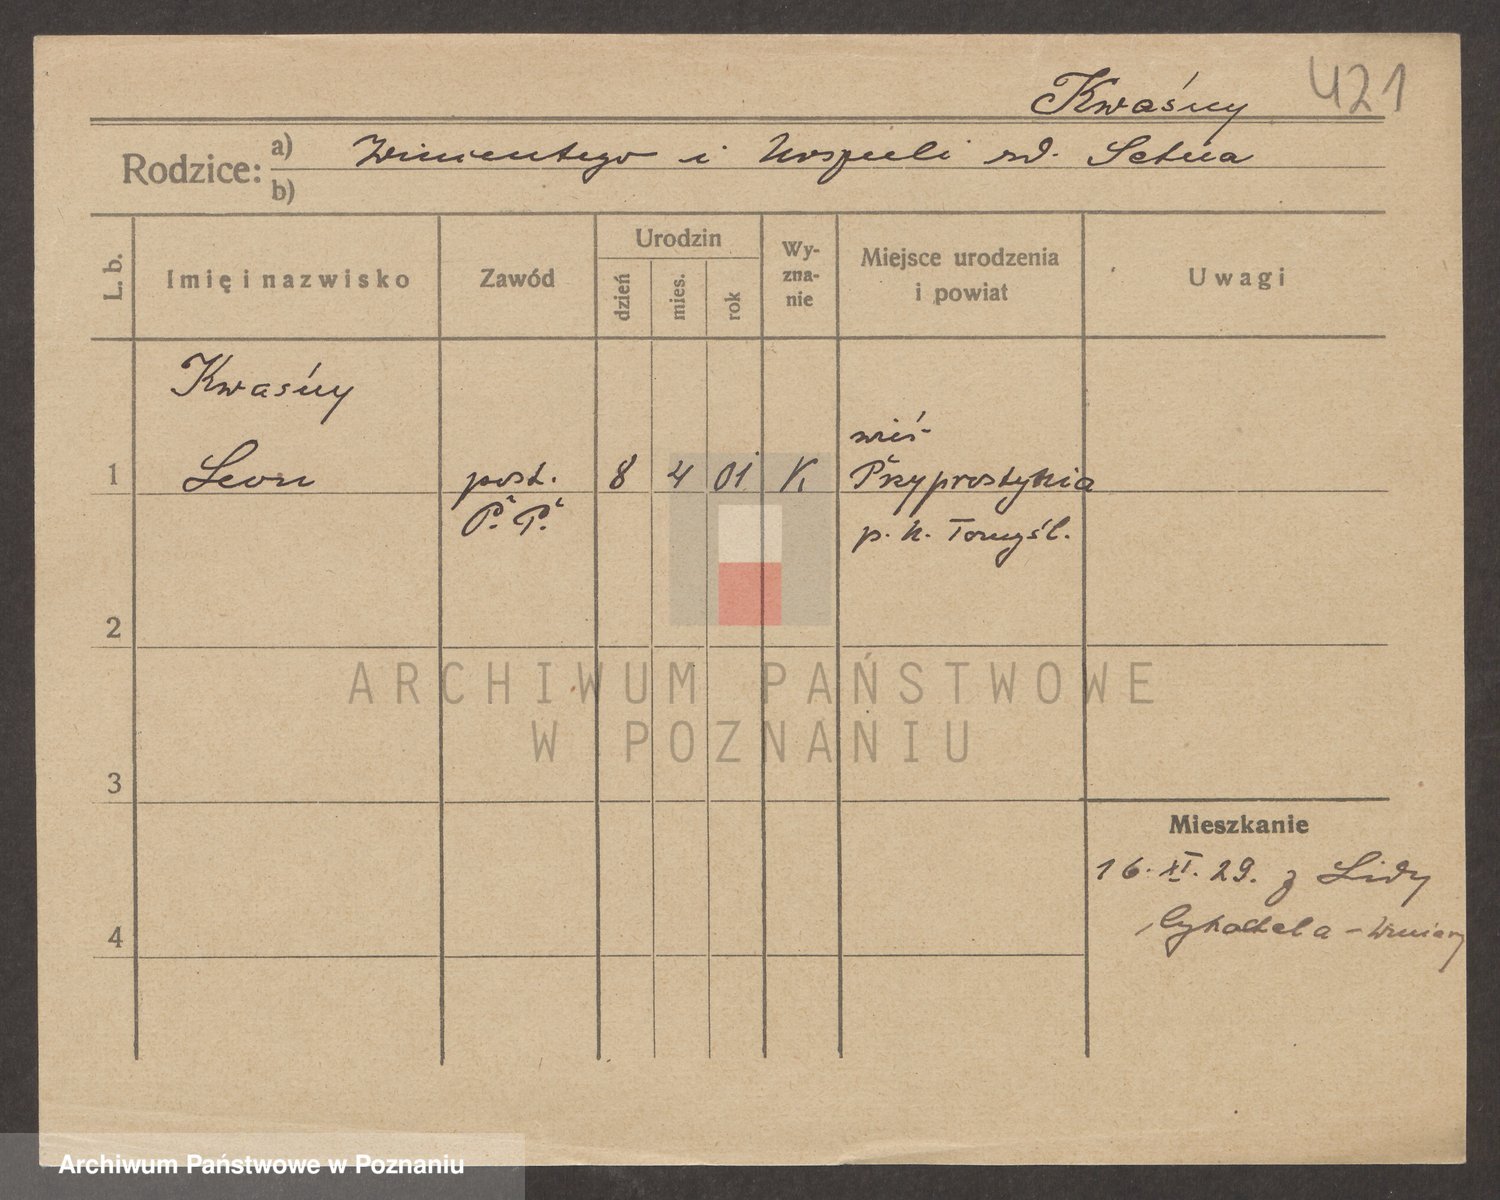 Kwaśny 421
Rodzice: a) Wincentego i Urszuli rd. Setna
b)
L. b. Imię i nazwisko Zawód Urodzin dzień mies. rok Wy-zna-nie Miejsce urodzenia i powiat Uwagi
Kwaśny
wieś
1 Leon post. 8 4 01 K Przyprostynia
P. P. p. N. Tomyśl.
2
ARCHIWUM PAŃSTWOWE
W POZNANIU
3
Mieszkanie
16. XI. 29. z Lidy
4 Cytadela – Winiary
Archiwum Państwowe w Poznaniu